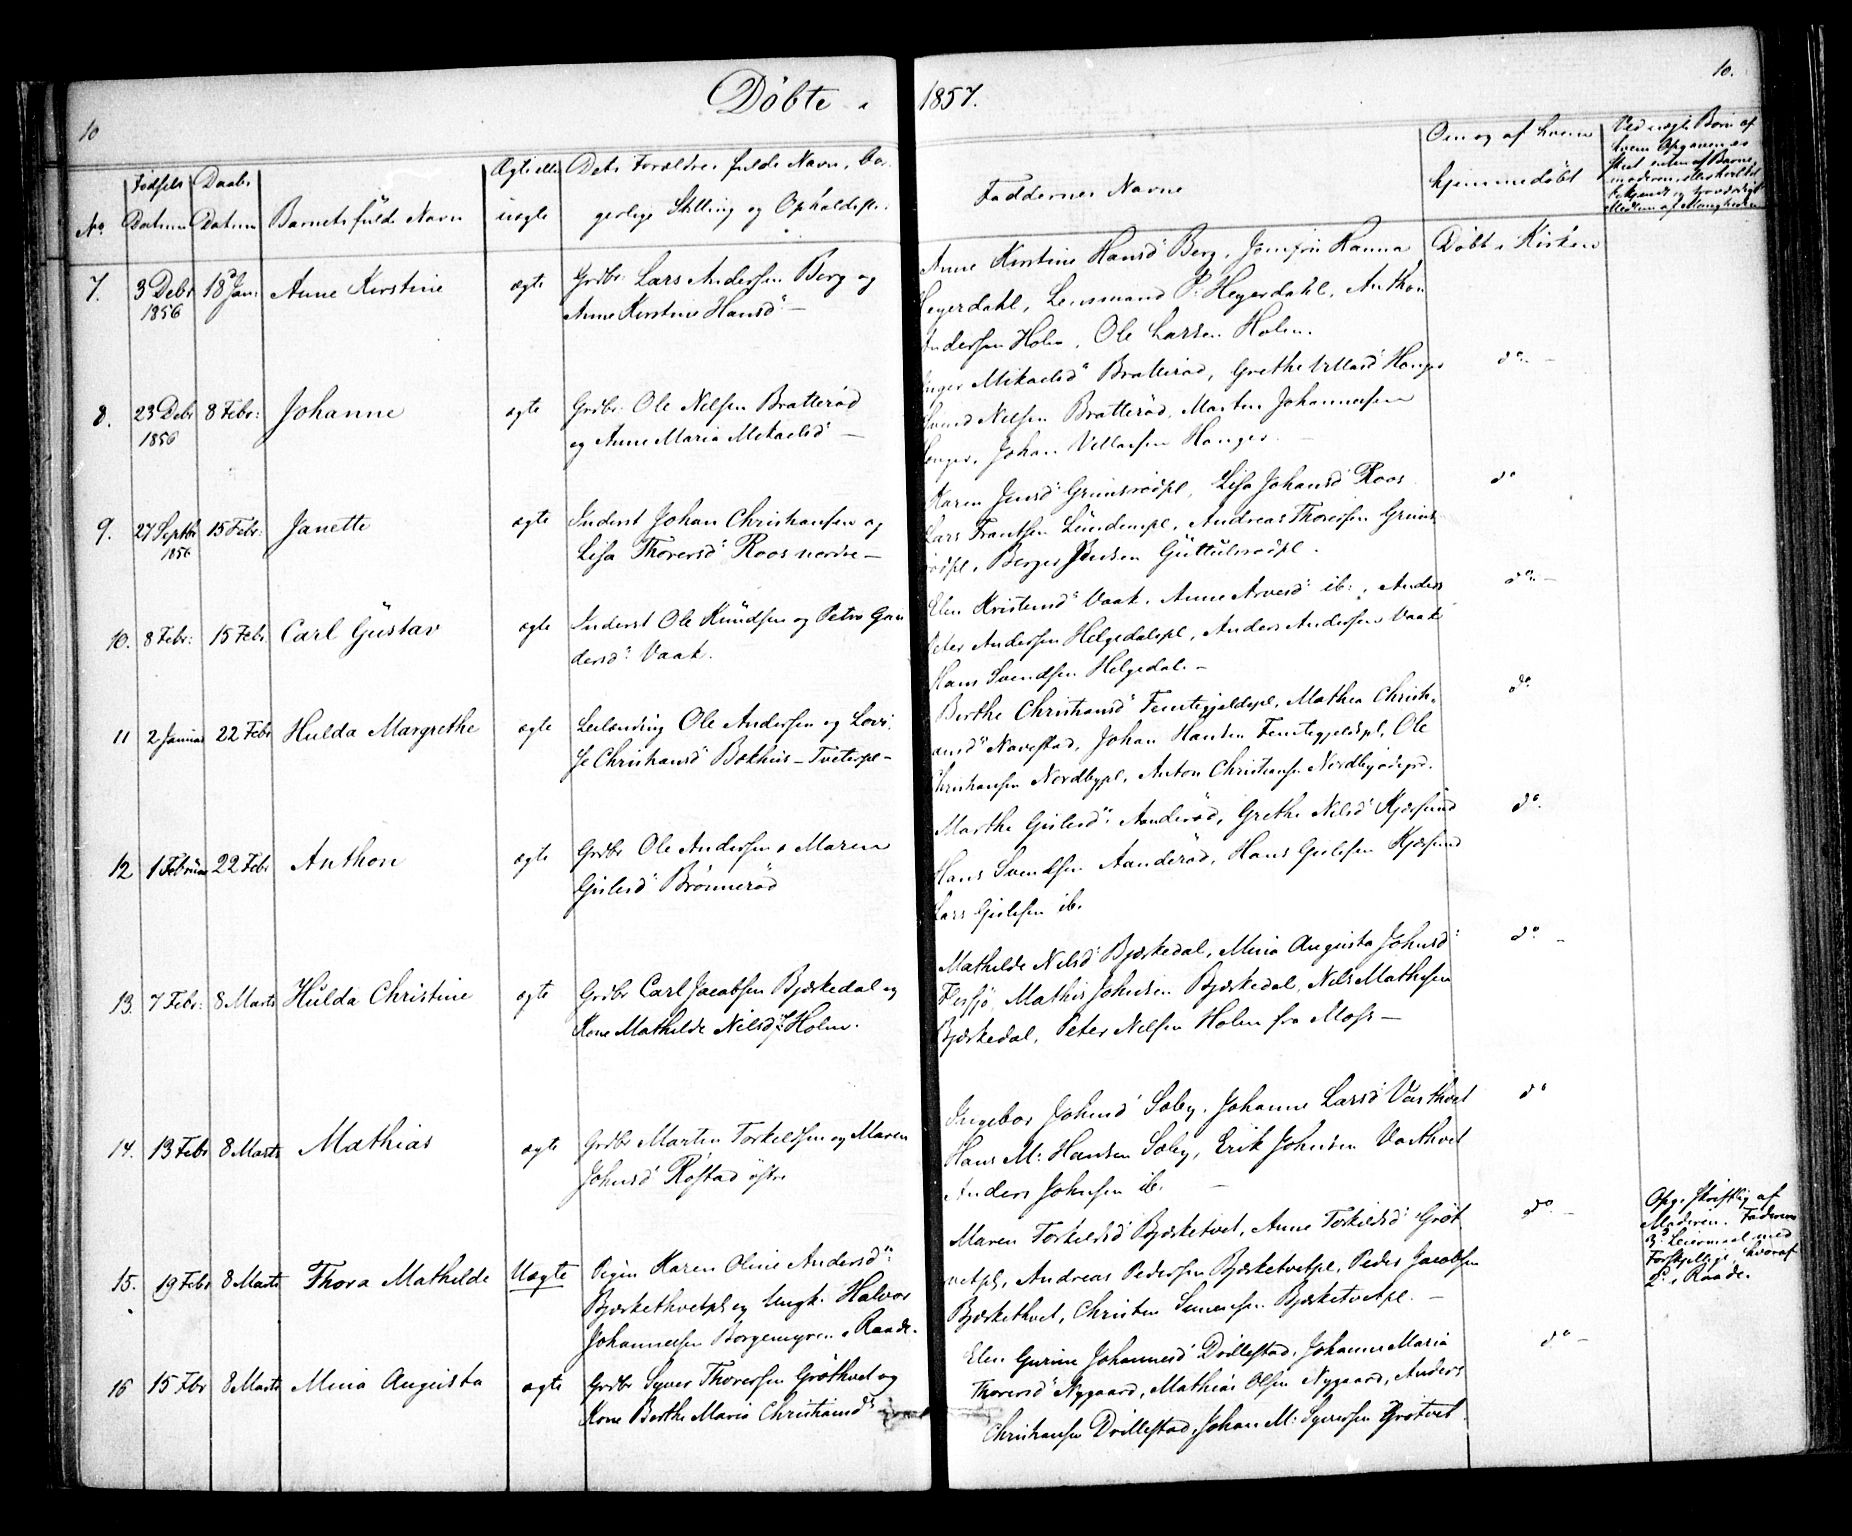 Döbte i 1857.
10
10.
No
Fødsels Datum
Daabs Datum
Barnets fulde Navn
Ægte eller uægte
Dets Forældres fulde Navn, Bor-
gerlige Stilling og Opholdsst.
Faddernes Navne
Om og af hvem
hjemmedöbt
Ved uægte Børn af
hvem Opgaven er
skeet enten af Barne-
moderen, eller hvilket
bekjendt og troværdigt
Medlem af Menigheden
7. 3 Debr 18 Jan: Anne Kirstine ægte Grdbr. Lars Andersen Berg og
1856 Anne Kirstine Hansd: –
Anne Kirstine Hansd Berg, Jomfru Hanna Döbt i Kirken
Heyerdahl, Lensmand P. Heyerdahl, Anthon
Andersen Holm, Ole Larsen Holm.
8. 23 Debr 8 Febr: Johanne ægte Grdbr. Ole Nilsen Bratteröd
1856 og Anne Maria Mikaelsd –
Inger Mikaelsd: Bratteröd, Grethe Villasd Hanger do –
Svend Nilsen Bratteröd, Marten Johannesen
Hanger, Johan Villassen Hanger. –
9. 27 Septbr 15 Febr: Janette ægte Inderst Johan Christiansen og
1856 Lisa Thoresd: Roos nordre –
Karen Jensd Grimsrödpl, Lisa Johansd Roos do
Lars Frantsen Lundempl, Andreas Thoresen Grims-
rödpl, Berger Jensen Guttulsrödpl.
10. 8 Febr: 15 Febr Carl Güstav ægte Inderst Ole Knudsen og Petra Gun
dersd: Vaak.
Elen Kristensd: Vaak, Anne Arvesd ib:, Anders do –
Peter Andersen Helgedalspl, Anders Andersen Vaak
Hans Svendsen Helgedal. –
11 2 Januar 22 Febr Hulda Margrethe ægte Leilænding Ole Andersen og Lovi-
se Christiansd Bokhus – Tveterpl –
Berthe Christiansd Femtegjeldspl, Mathea Christi- do
ansd Navestad, Johan Hansen Femtegjeldspl, Ole
Christiansen Nordbypl, Anton Christiansen Nordbyödegrd.
12 1 Februar 22 Febr Anthon ægte Grdbr Ole Andersen o Maren
Gislesd Brönneröd
Marthe Gislesd: Aanderöd, Grethe Nilsd Kjærsund do.
Hans Svendsen Aanderöd, Hans Gulesen Kjærsund
Lars Gislesen ib.
13. 7 Febr: 8 Marts Hulda Christine ægte Grdbr Carl Jacobsen Bjerkedal og
Kone Mathilde Nilsd f Holm.
Mathilde Nilsd Bjerkedal, Mina Augusta Johnsd: do –
Mathis Johnsen Bjerkedal, Nils Mathisen
Bjerkedal, Peter Nilsen Holm fra Moss –
14. 13 Febr 8 Marts Mathias ægte Grdbr Marten Torkelsen og Maren
Johnsd Röstad östre
Ingebor Johnsd Soby, Johanne Larsd Vasthvet do
Hans M: Hansen Soby, Erik Johnsen Vasthvet
Anders Johnsen ib. –
15. 19 Febr 8 Marts Thora Mathilde Uægte Pigen Karen Oline Andersd:
Bjerkethvetpl og Ungk: Halvor
Johannesen Borgemyren i Raade.
Maren Torkelsd Bjerketvet, Anne Torkelsd Gröt do –
vetpl, Andreas Pedersen Bjerketvetpl, Peder Jacobsen
Bjerkethvet, Christen Simensen Bjerketvetpl. –
Opg. Skriftlig af
Moderen. Faderens
3d Leiermaal med
Forskjellige, hvoraf
2 i Raade.
16 15 Fbr 8 Marts Mina Augusta ægte Grdbr Syver Thoresen Gröthvet og
Kone Berthe Maria Christiansd:
Elen Gurine Johannesd Drillestad, Johanne Maria do –
Thoresd Nygaard, Mathias Olsen Nygaard, Anders
Christiansen Drillestad, Johan M: Syversen Grötvet.